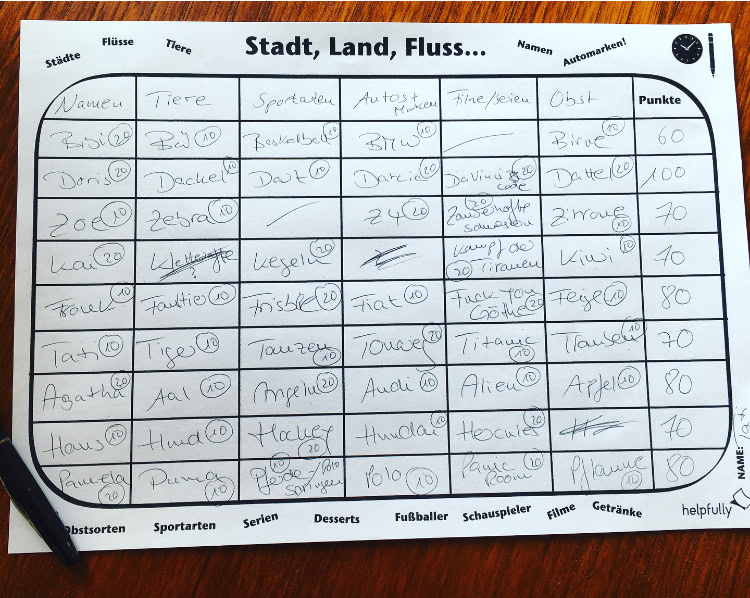 Städte Flüsse Tiere Stadt, Land, Fluss... Namen Automarken!
Namen Tiere Sportarten Autos + Marken Filme/Serien Obst Punkte
Bibi 20 Bär 10 Basketball 10 BMW 10 Birne 10 60
Doris 20 Dackel 10 Dart 10 Darcia 20 DaVinci code 20 Dattel 20 100
Zoe 10 Zebra 10 Z4 20 Zauberhafte 20 Zitrone 10 70
Kai 20 Kegeln 20 Kampf der Titanen 20 Kiwi 10 70
10 Faultier 10 Frisbie 20 Fiat 10 Fuck you Göthe 20 Feige 10 80
Tati 10 Tiger 10 Tanzen 10 20 Titanic 10 Trauben 10 70
Agatha 20 Aal 10 Angeln 20 Audi 10 Alien 10 Apfel 10 80
Hans 10 Hund 10 Hockey 20 Hundai 10 Hercules 20 70
Pamela 20 Puma 10 10 Polo springen Polo 10 Panic Room 10 Pflaume 10 80
NAME:
Obstsorten Sportarten Serien Desserts Fußballer Schauspieler Filme Getränke helpfully